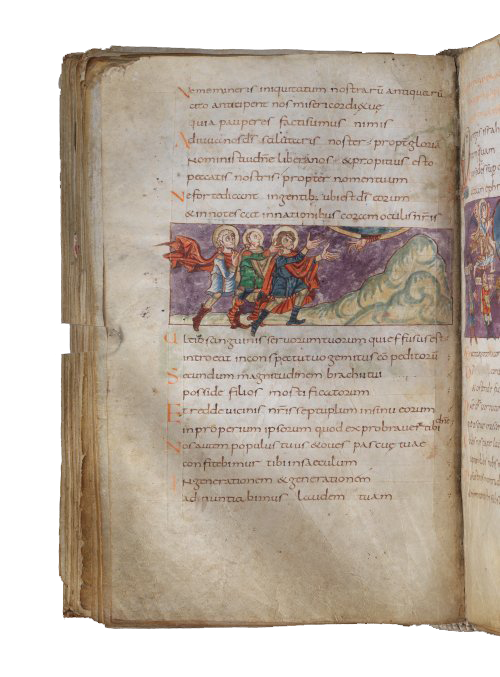 Nememineris iniquitatum nostrarū antiquarū
cito anticipent nos misericordiętuę
quia pauperes factisumus nimis
Adiuuanosd̄s salutaris noster & propt gloriā
Noministuidn̄e liberanos & propitius esto
peccatis nostris propter nomentuum
Neforte dicant ingentib; ubiestd̄s eorum
& innotescat innationibus coram oculis nr̄is
Ultio sanguinis seruorumtuorum quieffususest
introeat inconspectutuo gemitus cōpeditorū
Secundum magnitudinem brachiitui
posside filios mortificatorum
Et redde uicinis nr̄is septuplum insinu eorum
inproperium ipsorum quod exprobrauer tibi dn̄e
Nos autem populus tuus & oues pascuę tuae
confitebimur tibi insaeculum
Ingenerationem & generationem
adnuntiabimus laudem tuam